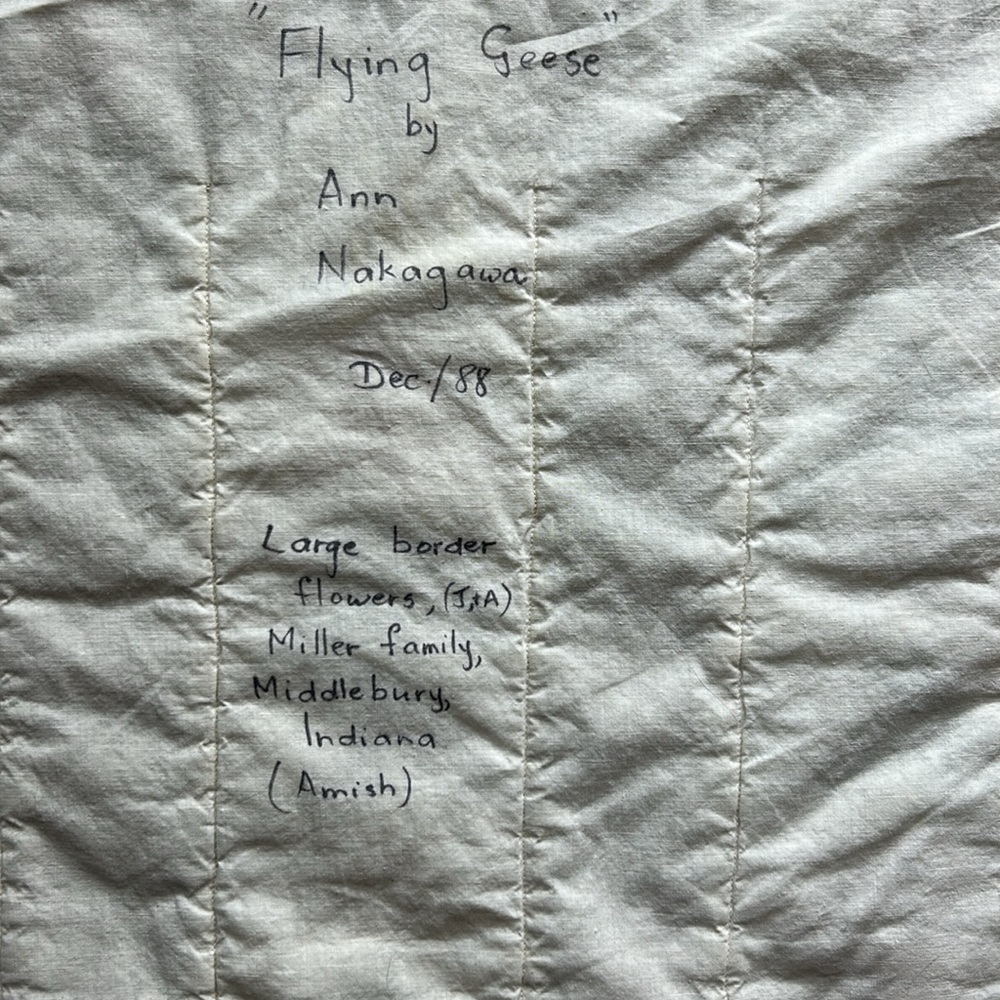 "Flying Geese"
by
Ann
Nakagawa
Dec./88
Large border
flowers, (J,+A)
Miller family,
Middlebury,
Indiana
(Amish)